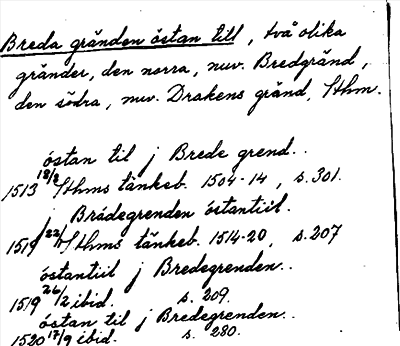 Breda gränden östan till, två olika
gränder, den norra, nuv. Bredgränd,
den södra, nuv. Drakens gränd, Sthm.
östan til j Brede grend..
1513 18/8 Sthms tänkeb. 1504-14, s. 301.
j Brädegrenden östantiil.
1519 22/ Sthms tänkeb. 1514-20, s. 207
östantiil j Bredegrenden..
1519 26/2 ibid. s. 209.
östan til j Bredegrenden..
1520 17/9 ibid. s. 280.